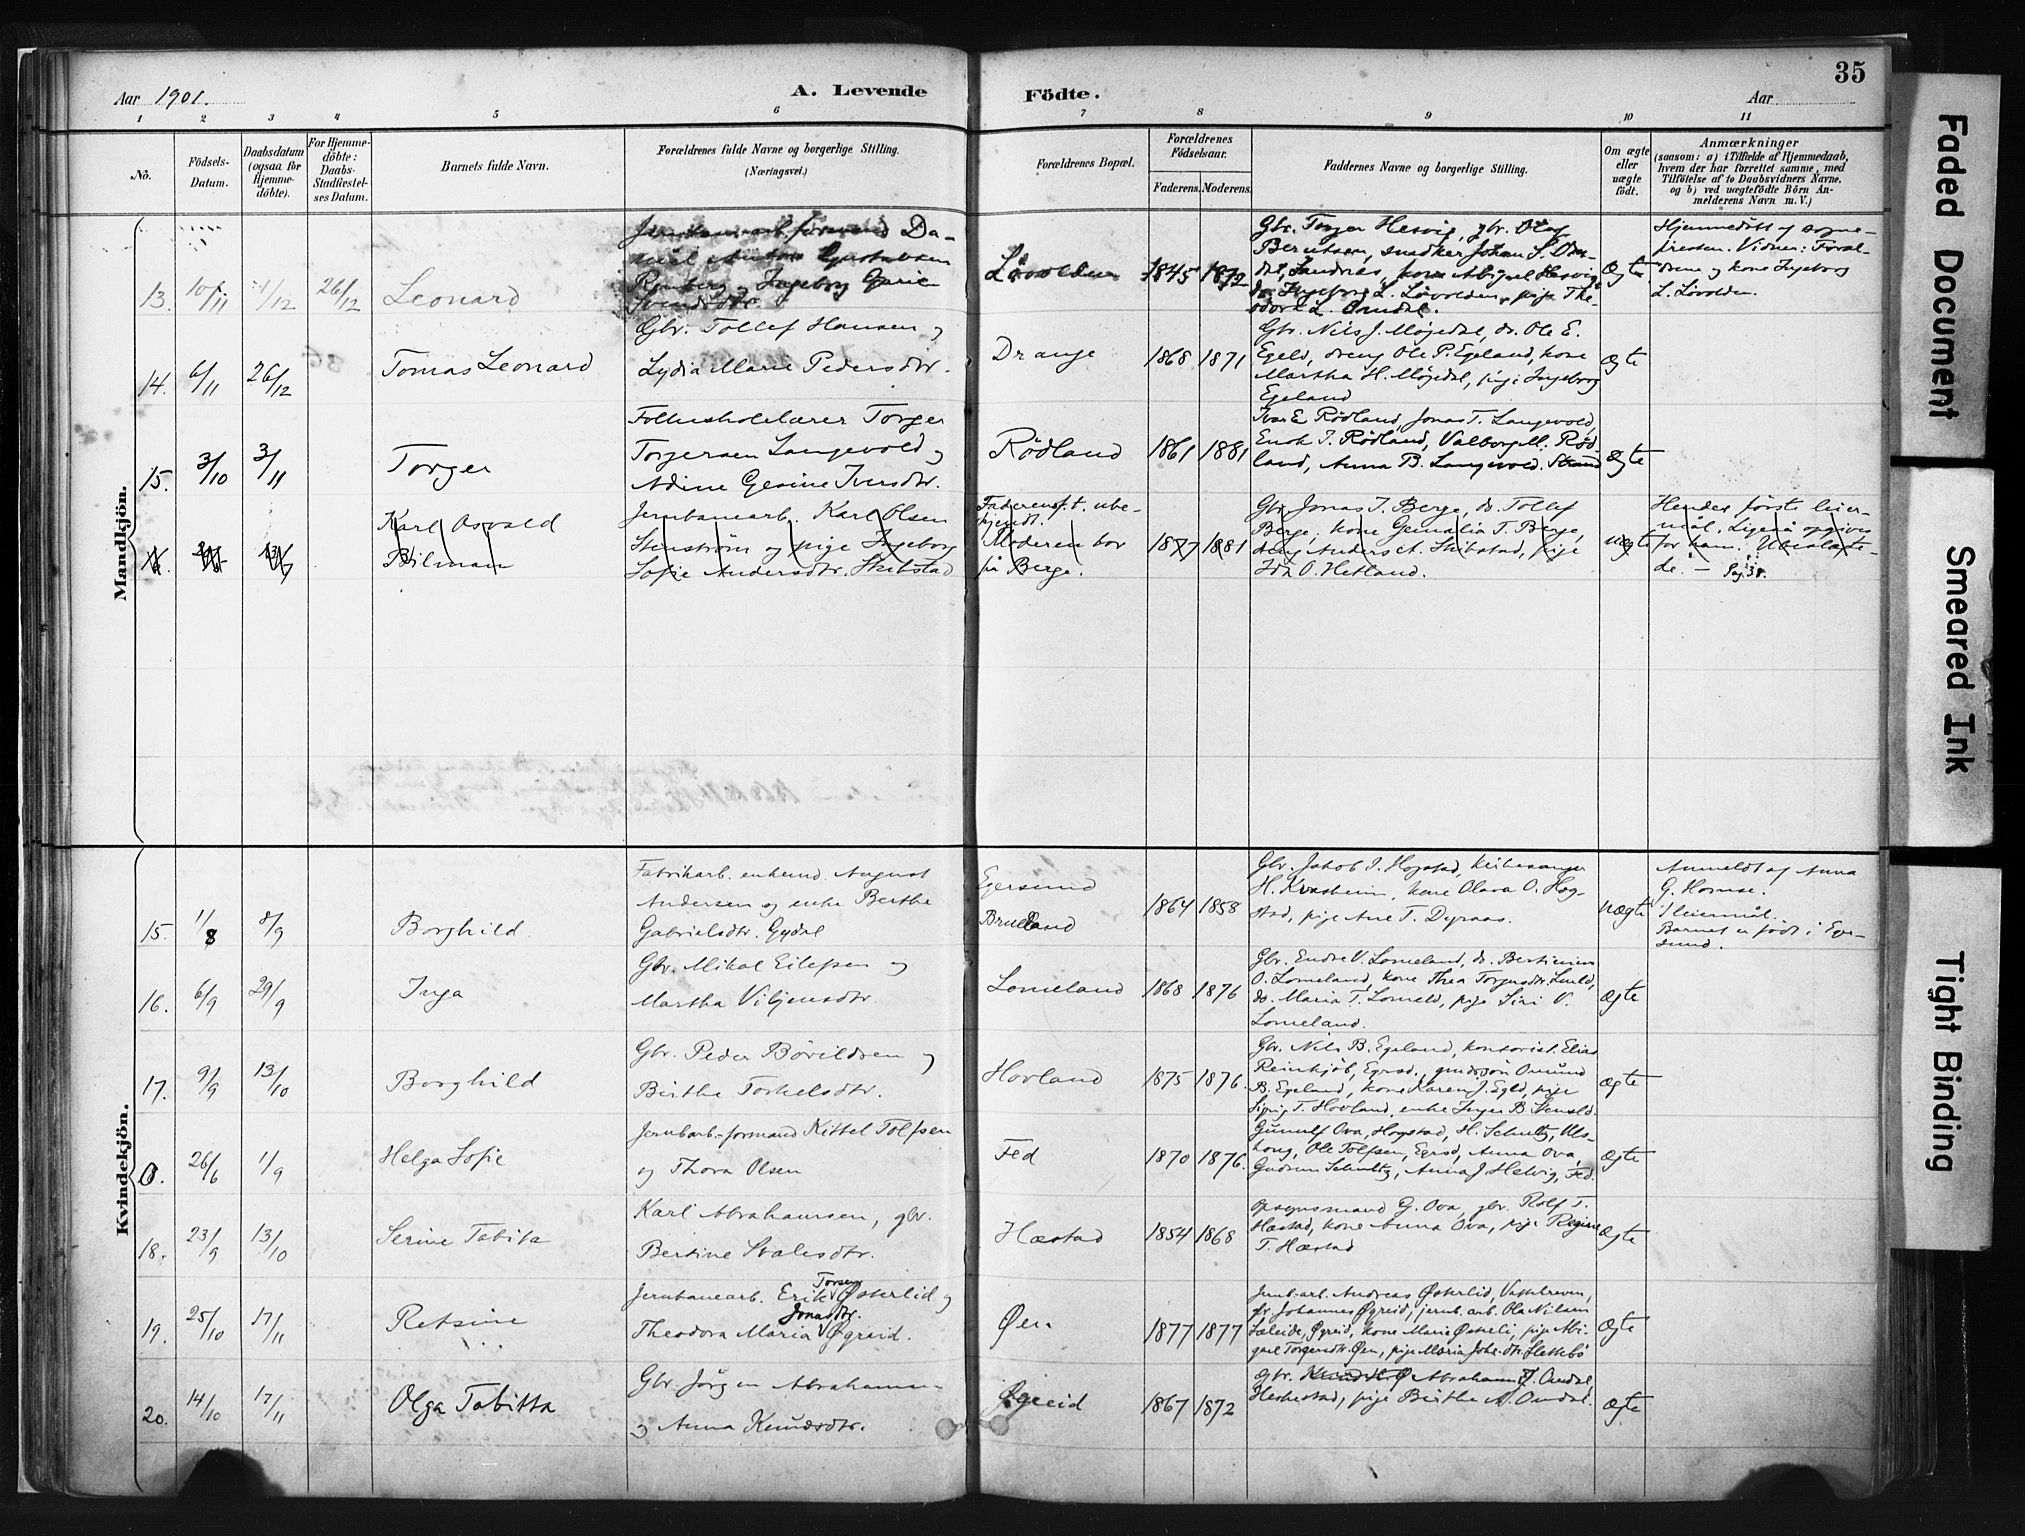 35
Aar 1901.
A. Levende Födte.
Aar
1 2 3 4 5 6 7 8 9 10 11
No.
Födsels-Datum.
Daabsdatum (ogsaa for Hjemmedöbte).
For Hjemmedöbte: Daabs-Stadfæstelses Datum.
Barnets fulde Navn.
Forældrenes fulde Navne og borgerlige Stilling. (Næringsvei.)
Forældrenes Bopæl.
Forældrenes Födselsaar.
Faderens. Moderens.
Faddernes Navne og borgerlige Stilling.
Om ægte eller uægte födt.
Anmærkninger
(saasom: a) i Tilfælde af Hjemmedaab, hvem der har forrettet samme, med Tilföielse af to Daabsvidners Navne, og b) ved uægtefödte Börn Anmelderens Navn m. V.)
Mandkjön.
13. 10/11 1/12 26/12 Leonard
Løvolden 1845 1872
Gbr. Torger Helvig, gbr. Olaf
Berentsen, snedker Johan S.
Ægte
Hjemmedöbt af sogne-
presten. Vidner: Foræl-
drene og kone Ingeborg
L. Løvolden.
14. 6/11 26/12 Tomas Leonard
Gbr. Tollef Hansen og
Lydia Marie Pedersdtr.
Drange 1868 1871
Gbr. Nils J. Møgedal, do. Ole E.
Egeld, dreng Ole P. Egeland, kone
Martha H. Møgedal, pige Ingeborg
Egeland
Ægte
15. 3/10 3/11 Torger
Folkeskolelærer Torger
Torgersen Langevold og
Adine Gesine Iversdtr.
Rødland 1861 1881
Ivar E. Rødland, Jonas T. Langevold,
Enok I. Rødland, Valborg M. Rød-
land, Anna B. Langevold. Strand
Ægte
Karl Osvald
Hilman
Jernbanearb. Karl Olsen
Stenstrøm og pige Ingeborg
Sofie Andersdtr. Skibstad
Faderens f. t. ube-
kjendt.
Moderen bor
på Berge.
1877 1881
Gbr. Jonas T. Berge, do. Tollef
Berge, kone T. Berge,
dreng Anders A. Skibstad, pige
Ida O. Hetland.
uægte
Hendes første leier-
mål. Ligeså opgives
for ham.
Pag 38.
Kvindekjön.
15. 1/8 8/9 Borghild.
Fabrikarb. enkemd. August
Andersen og enke Berthe
Gabrielsdtr. Gydal
Egersund
Brueland
1864 1858
Gbr. Jakob I. Hogstad, kirkesanger
H. Kvasheim, kone Olava O. Hog-
stad, pige Ane T. Dyraas.
uægte
Anmeldt af Anna
G. Homse.
1 leiermål.
Barnet er født i Eger-
sund.
16. 6/9 29/9 Inga
Gbr. Mikal Eilefsen og
Martha Viljensdtr.
Lomeland 1868 1876
Gbr. Endre V. Lomeland, do. Bertinius
O. Lomeland, kone Thea Torgersdtr. Lmld,
do. Maria T. Lomeld, pige Siri V.
Lomeland.
Ægte
17. 9/9 13/10 Borghild
Gbr. Peder Bøvildsen og
Birthe Torkelsdtr.
Hovland 1875 1876.
Gbr. Nils B. Egeland, kontorist. Elias
Reinkjøb, Egrsd., gmdssøn Omund
B. Egeland, kone Karen J. Egld, pige
Sigrig T. Hovland, enke Inger B.
Ægte
0. 26/6 1/9 Helga Sofie
Jernbarb.-formand Kittel Tolfsen
og Thora Olsen
Fed 1870 1876.
Gunnulf Ova, Hogstad, H. Schultz, Uls-
koug, Ole Tolfsen, Egrsd, Anna Ova,
Gudrun Schultz, Anna J. Helvig, Fed.
Ægte
18. 23/9 13/10 Serine Tabita
Karl Abrahamsen, gbr.
Bertine Svalesdtr.
Hæstad 1854 1868
Opsynsmand G. Ova, gbr. Rolf T.
Hæstad, kone Anna Ova, pige Regine
T. Hæstad
Ægte
19. 25/10 17/11 Retsine
Torsen
Jernbanearb. Erik Østerlid og
Jonasdtr.
Theodora Maria Øgreid.
Øen. 1877 1877
Jernb.arb. Andreas Østerlid,
gbr. Johannes Øgreid, jernb. arb. Ola Nilsen
Øgreid, kone Marie Østeli, pige Abi-
gael Torgersdtr. Øen, pige Maria Johs.dtr. Slettebö
Ægte
20. 14/10 17/11 Olga Tabitta
Gbr. Jörgen Abrahamsen
og Anna Knudsdtr.
Øgreid 1867 1872
gbr. Abraham J. Omdal
Heskestad, pige Birthe A. Omdal.
Ægte
Faded Document
Smeared Ink
Tight Binding